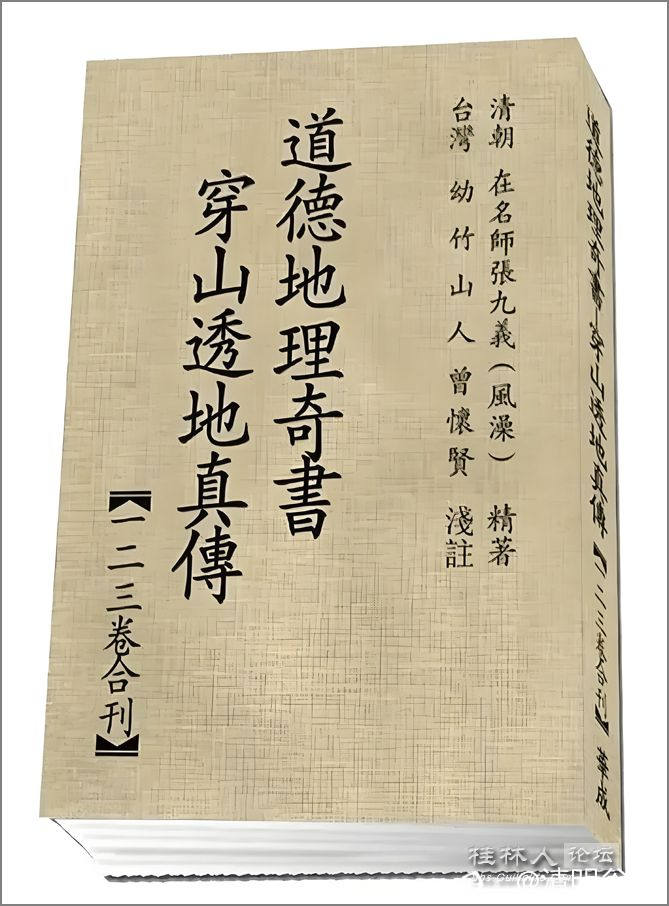 清朝 在名師張九義(風澡) 精著
台灣 幼竹山人曾懷賢 淺註
道德地理奇書
穿山透地真傳
【一二三卷合刊】
道德地理奇書 穿山透地真傳【一二三卷合刊】 華成
桂林人论坛